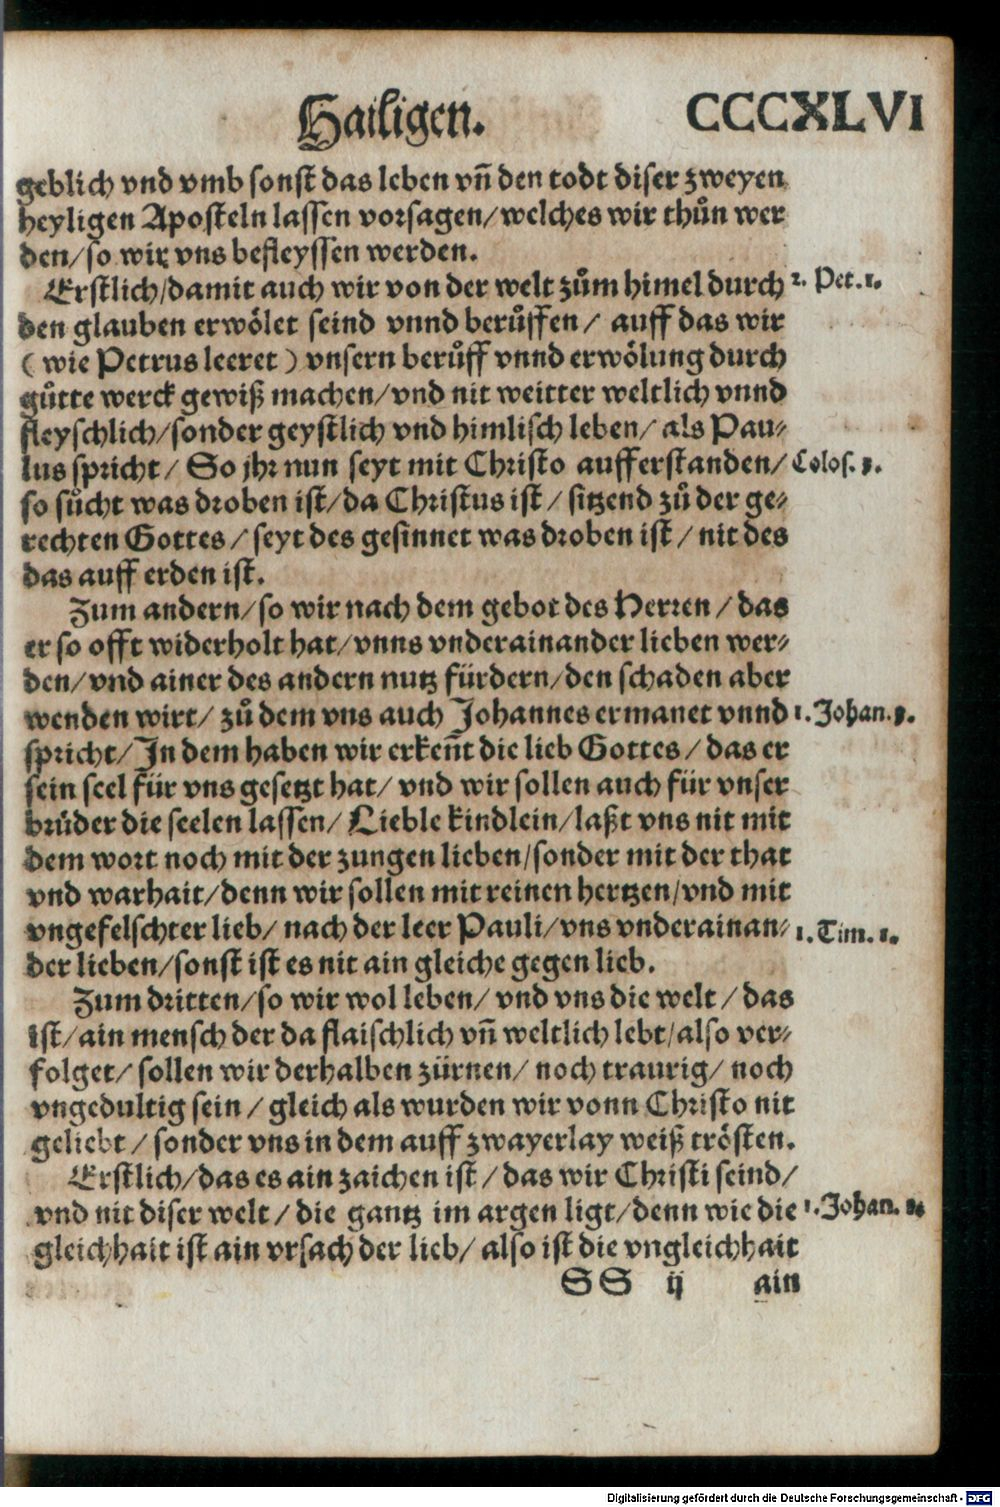 Hailigen. CCCXLVI
geblich vnd vmb sonst das leben vñ den todt diser zweyen
heyligen Aposteln lassen vorsagen/welches wir thůn wer
den/so wir vns befleyssen werden.
Erstlich/damit auch wir von der welt zům himel durch 2. Pet. 1.
den glauben erwölet seind vnnd berůffen/ auff das wir
( wie Petrus leeret ) vnsern berůff vnnd erwölung durch
gůtte werck gewiß machen/vnd nit weitter weltlich vnnd
fleyschlich/sonder geystlich vnd himlisch leben/ als Pau-
lus spricht/ So jhr nun seyt mit Christo aufferstanden/ Colos. 3.
so sůcht was droben ist/da Christus ist/ sitzend zů der ge-
rechten Gottes/ seyt des gesinnet was droben ist/ nit des
das auff erden ist.
Zum andern/so wir nach dem gebot des Herren/ das
er so offt widerholt hat/vnns vnderainander lieben wer-
den/vnd ainer des andern nutz fürdern/den schaden aber
wenden wirt/ zů dem vns auch Johannes ermanet vnnd 1. Johan. 3.
spricht/In dem haben wir erkeñt die lieb Gottes/ das er
sein seel für vns gesetzt hat/ vnd wir sollen auch für vnser
brůder die seelen lassen/ Lieble kindlein/laßt vns nit mit
dem wort noch mit der zungen lieben/sonder mit der that
vnd warhait/denn wir sollen mit reinen hertzen/vnd mit
vngefelschter lieb/ nach der leer Pauli/vns vnderainan- 1. Tim. 1.
der lieben/sonst ist es nit ain gleiche gegen lieb.
Zum dritten/so wir wol leben/ vnd vns die welt/ das
ist/ain mensch der da flaischlich vñ weltlich lebt/also ver-
folget/ sollen wir derhalben zürnen/ noch traurig/ noch
vngedultig sein/ gleich als wurden wir vonn Christo nit
geliebt/ sonder vns in dem auff zwayerlay weiß trösten.
Erstlich/das es ain zaichen ist/ das wir Christi seind/
vnd nit diser welt/ die gantz im argen ligt/denn wie die 1. Johan.
gleichhait ist ain vrsach der lieb/ also ist die vngleichhait
SS ij ain
Digitalisierung gefördert durch die Deutsche Forschungsgemeinschaft - DFG